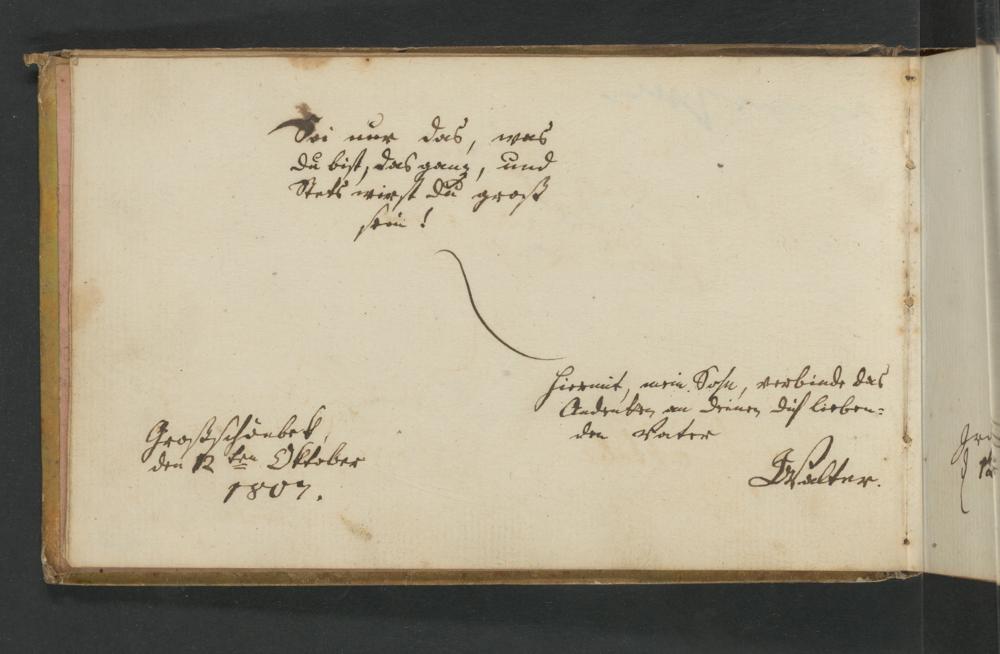 Sei nur das, was
Du bist, das ganz, und
Stets wirst Du groß
sein!
Hiermit, mein Sohn, verbinde das
Andenken an Deinen Dich lieben-
den Vater
Walter.
Großschönebek,
den 12ten Oktober
1807.